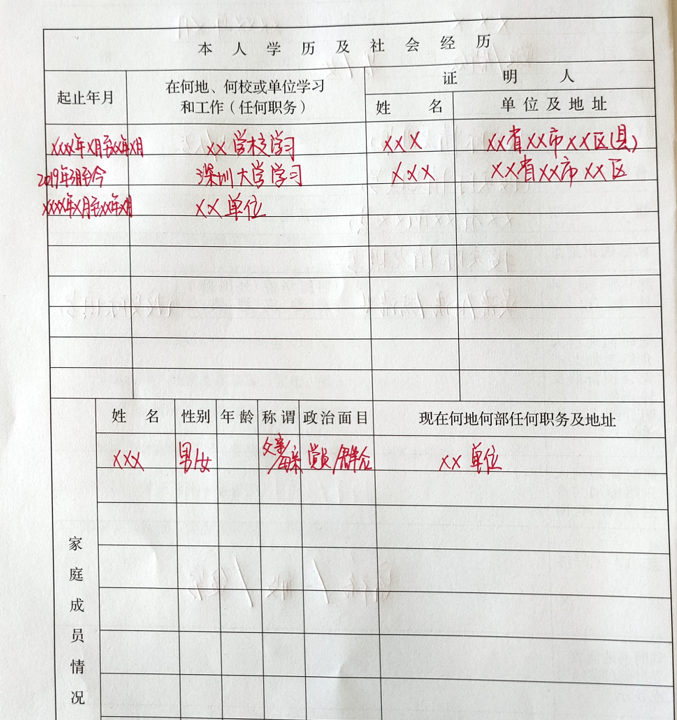 本人学历及社会经历
起止年月 在何地、何校或单位学习和工作（任何职务） 证明人
姓名 单位及地址
xxxx年x月至xx年x月 xx学校学习 xxx xx省xx市xx区(县)
2019年9月至今 深圳大学学习 xxx xx省xx市xx区
xxxx年x月至xx年x月 xx单位
家庭成员情况
姓名 性别 年龄 称谓 政治面目 现在何地何部任何职务及地址
xxx 男/女 党员/群众 xx单位